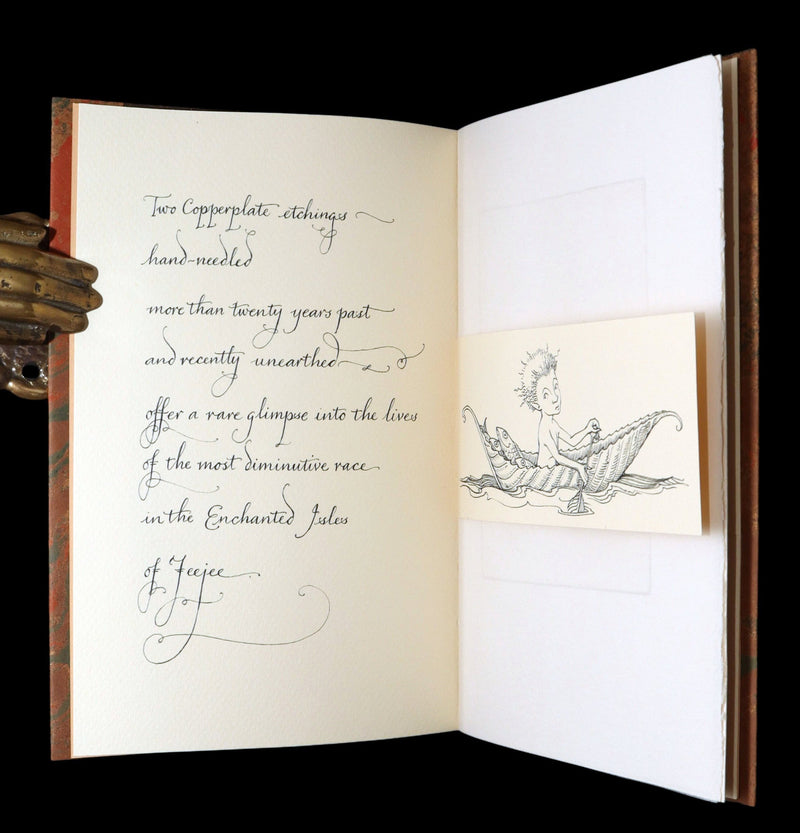 Two Copperplate etchings
hand-needled
more than twenty years past
and recently unearthed
offer a rare glimpse into the lives
of the most diminutive race
in the Enchanted Isles
of Jeejee